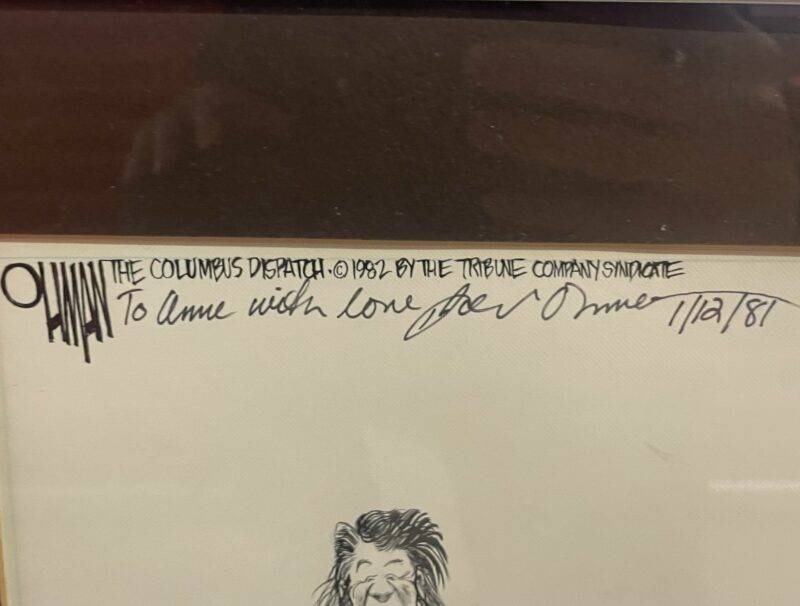 OHMAN THE COLUMBUS DISPATCH · © 1982 BY THE TRIBUNE COMPANY SYNDICATE
To Anne with love 1/12/81